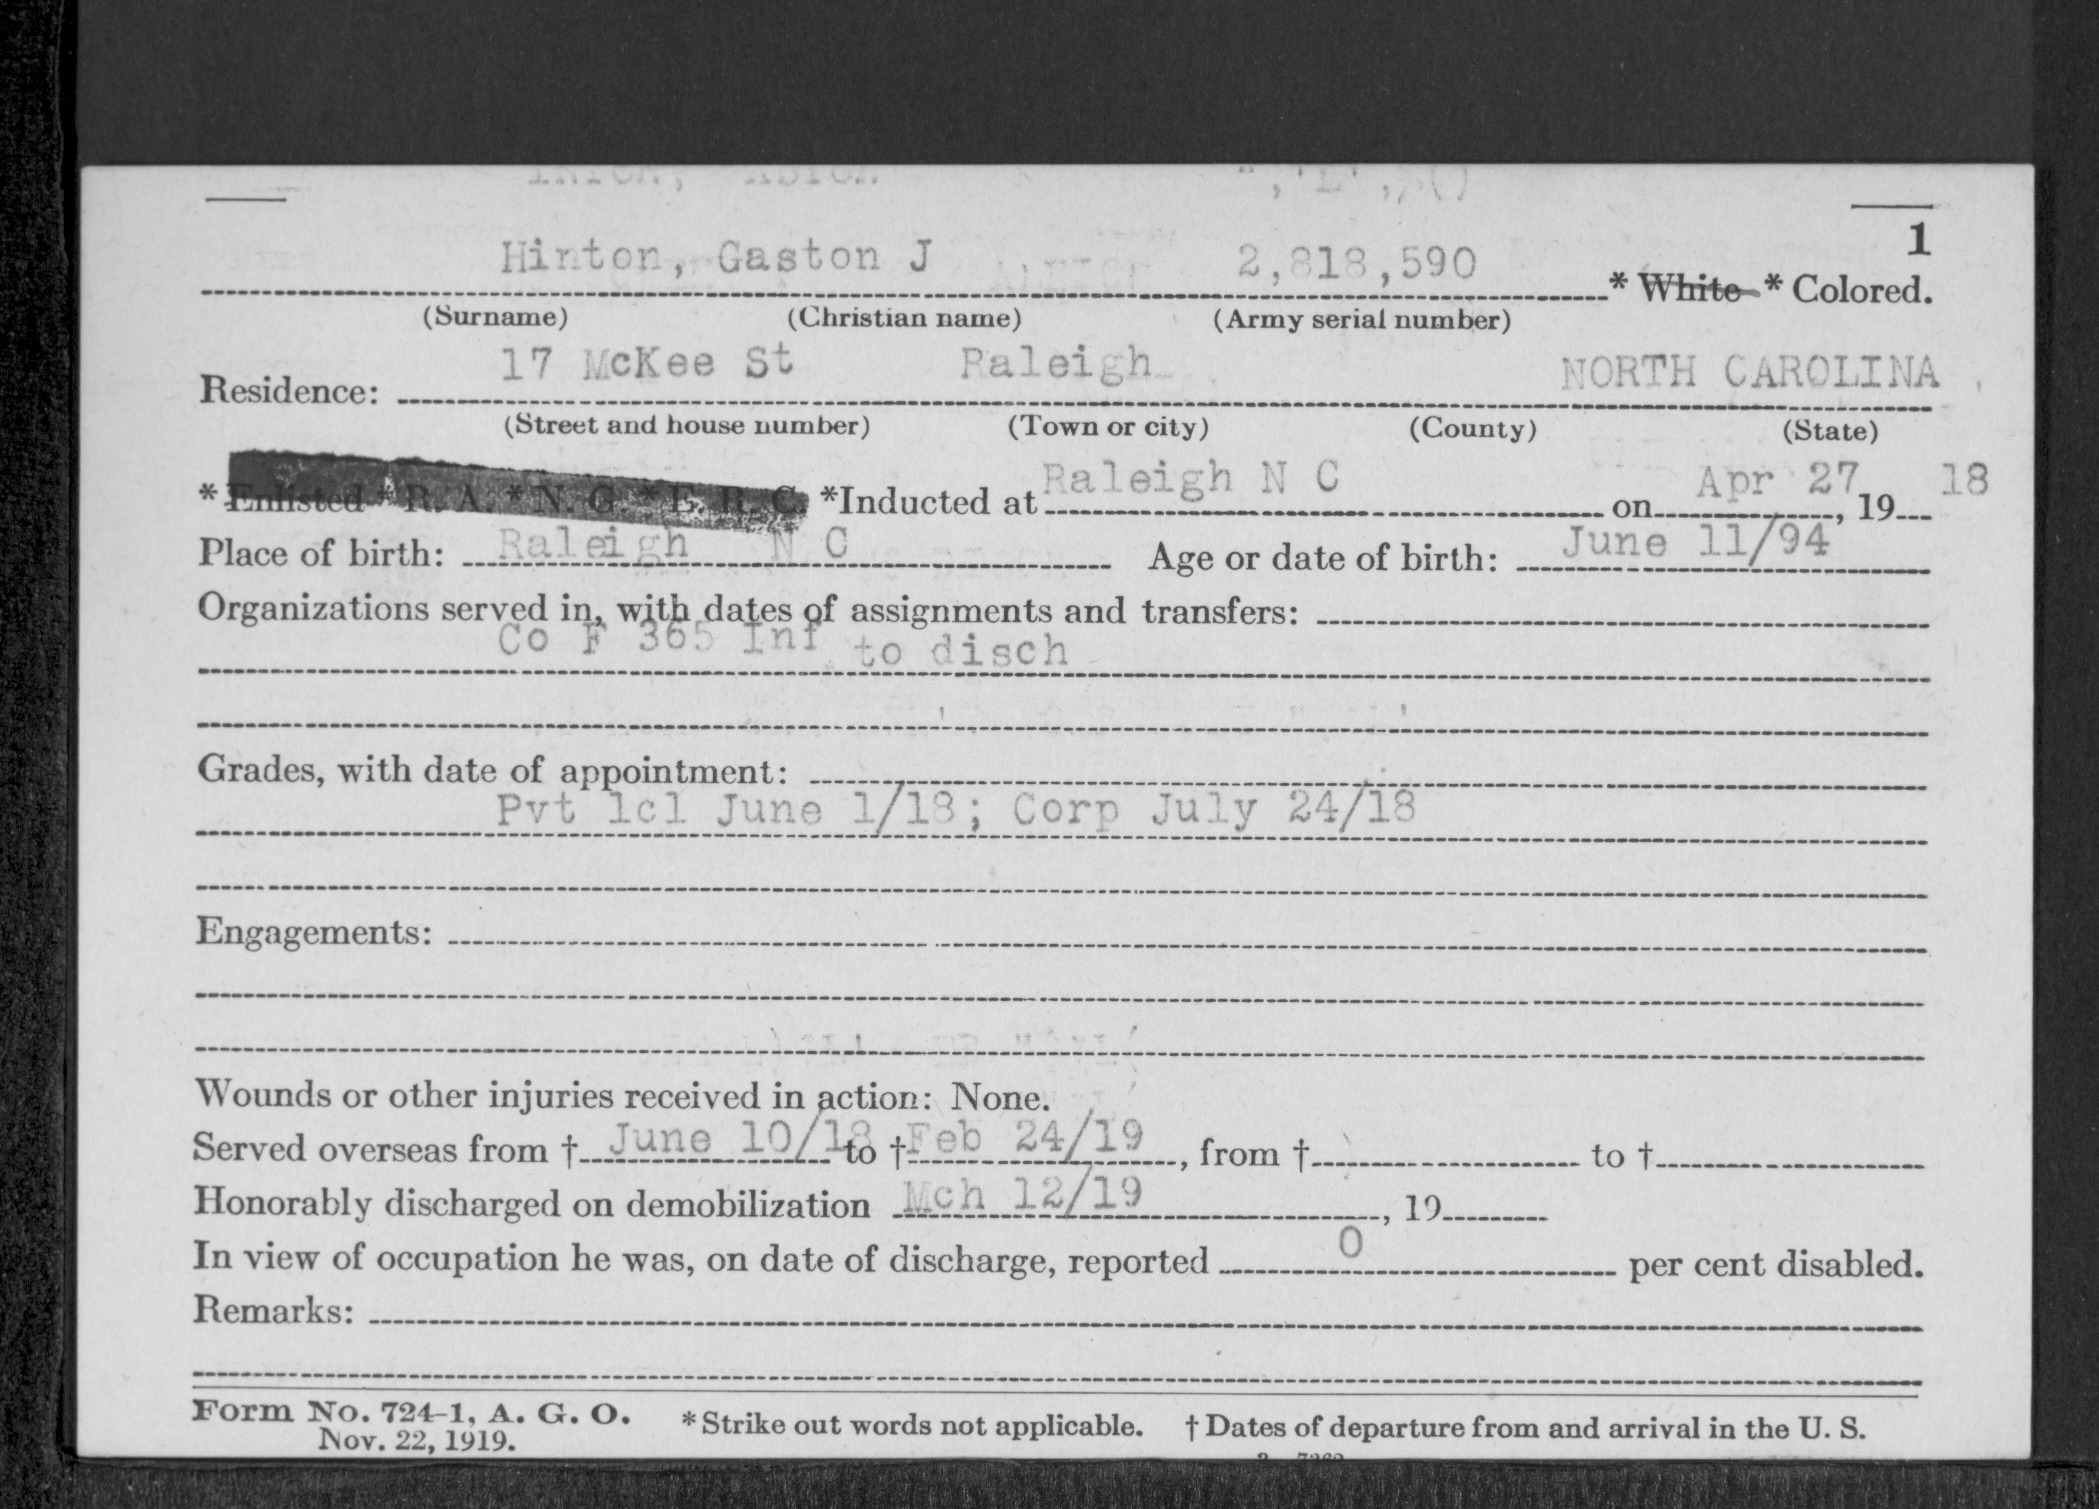 1
Hinton, Gaston J 2,818,590 * White * Colored.
(Surname) (Christian name) (Army serial number)
17 McKee St Raleigh NORTH CAROLINA
Residence:
(Street and house number) (Town or city) (County) (State)
* Enlisted * R. A. * N. G. * E. R. C. *Inducted at Raleigh N C on Apr 27, 19 18
Place of birth: Raleigh N C Age or date of birth: June 11/94
Organizations served in, with dates of assignments and transfers:
Co F 365 Inf to disch
Grades, with date of appointment:
Pvt 1cl June 1/18; Corp July 24/18
Engagements:
Wounds or other injuries received in action: None.
Served overseas from † June 10/18 to † Feb 24/19, from † to †
Honorably discharged on demobilization Mch 12/19, 19
In view of occupation he was, on date of discharge, reported 0 per cent disabled.
Remarks:
Form No. 724-1, A. G. O. *Strike out words not applicable. † Dates of departure from and arrival in the U. S.
Nov. 22, 1919.